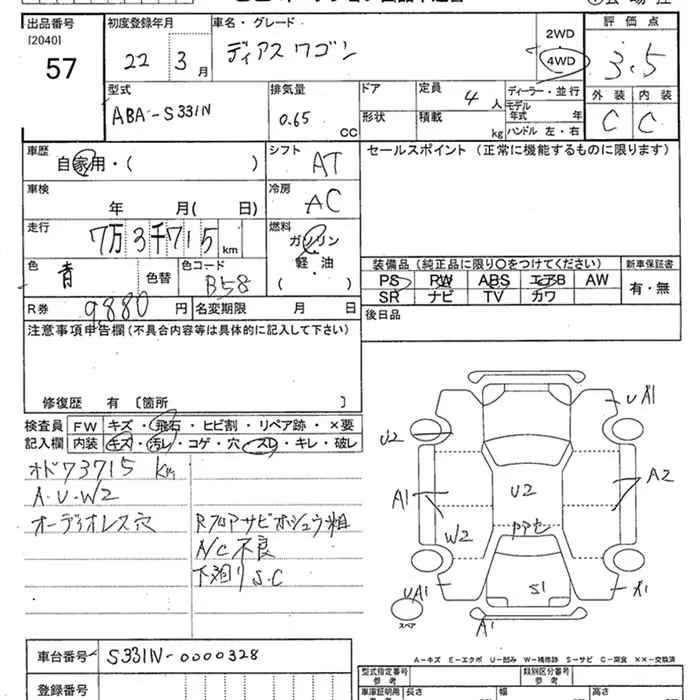 出品番号 初度登録年月 車名・グレード 評価点
[2040] 2WD
57 22 3月 ディアスワゴン 4WD 3.5
型式 排気量 ドア 定員 ディーラー・並行 外装 内装
ABA-S331N 0.65 CC 4人 モデル年式 年 C C
形状 積載 kg ハンドル 左・右
車歴 シフト セールスポイント (正常に機能するものに限ります)
自家用・( ) AT
車検 冷房
年 月( 日) AC
走行 燃料
7万3千715km ガソリン
色 色コード 軽・油 装備品(純正品に限り○をつけてください) 新車保証書
青 色替 B58 ( ) PS RW ABS エアB AW 有・無
SR ナビ TV カワ
R券 9880円 名変期限 月 日 後日品
注意事項申告欄(不具合内容等は具体的に記入して下さい)
修復歴 有 [箇所 ]
検査員 FW キズ・飛石・ヒビ割・リペア跡・×要
記入欄 内装 キズ・汚レ・コゲ・穴・スレ・キレ・破レ
オド73715km
A・U・W2
オーディオレス穴 Rフロアサビホシュウ粗
A/C不良
下廻りS.C
UA1
U2
A1 U2 A2
W2
UA1 S1 A1
スペア A1
車台番号 S331N-0000328
登録番号
A-キズ E-エクボ U-凹み W-補修跡 S-サビ C-腐食 ××-交換済
型式指定番号 類別区分番号
参考 参考
車庫証明用 長さ 幅 高さ
参考